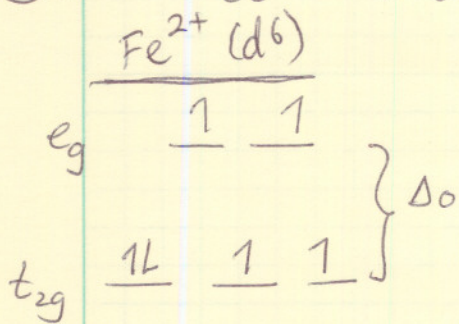 Fe²⁺ (d⁶)
eg 1 1
Δo
t2g 1L 1 1